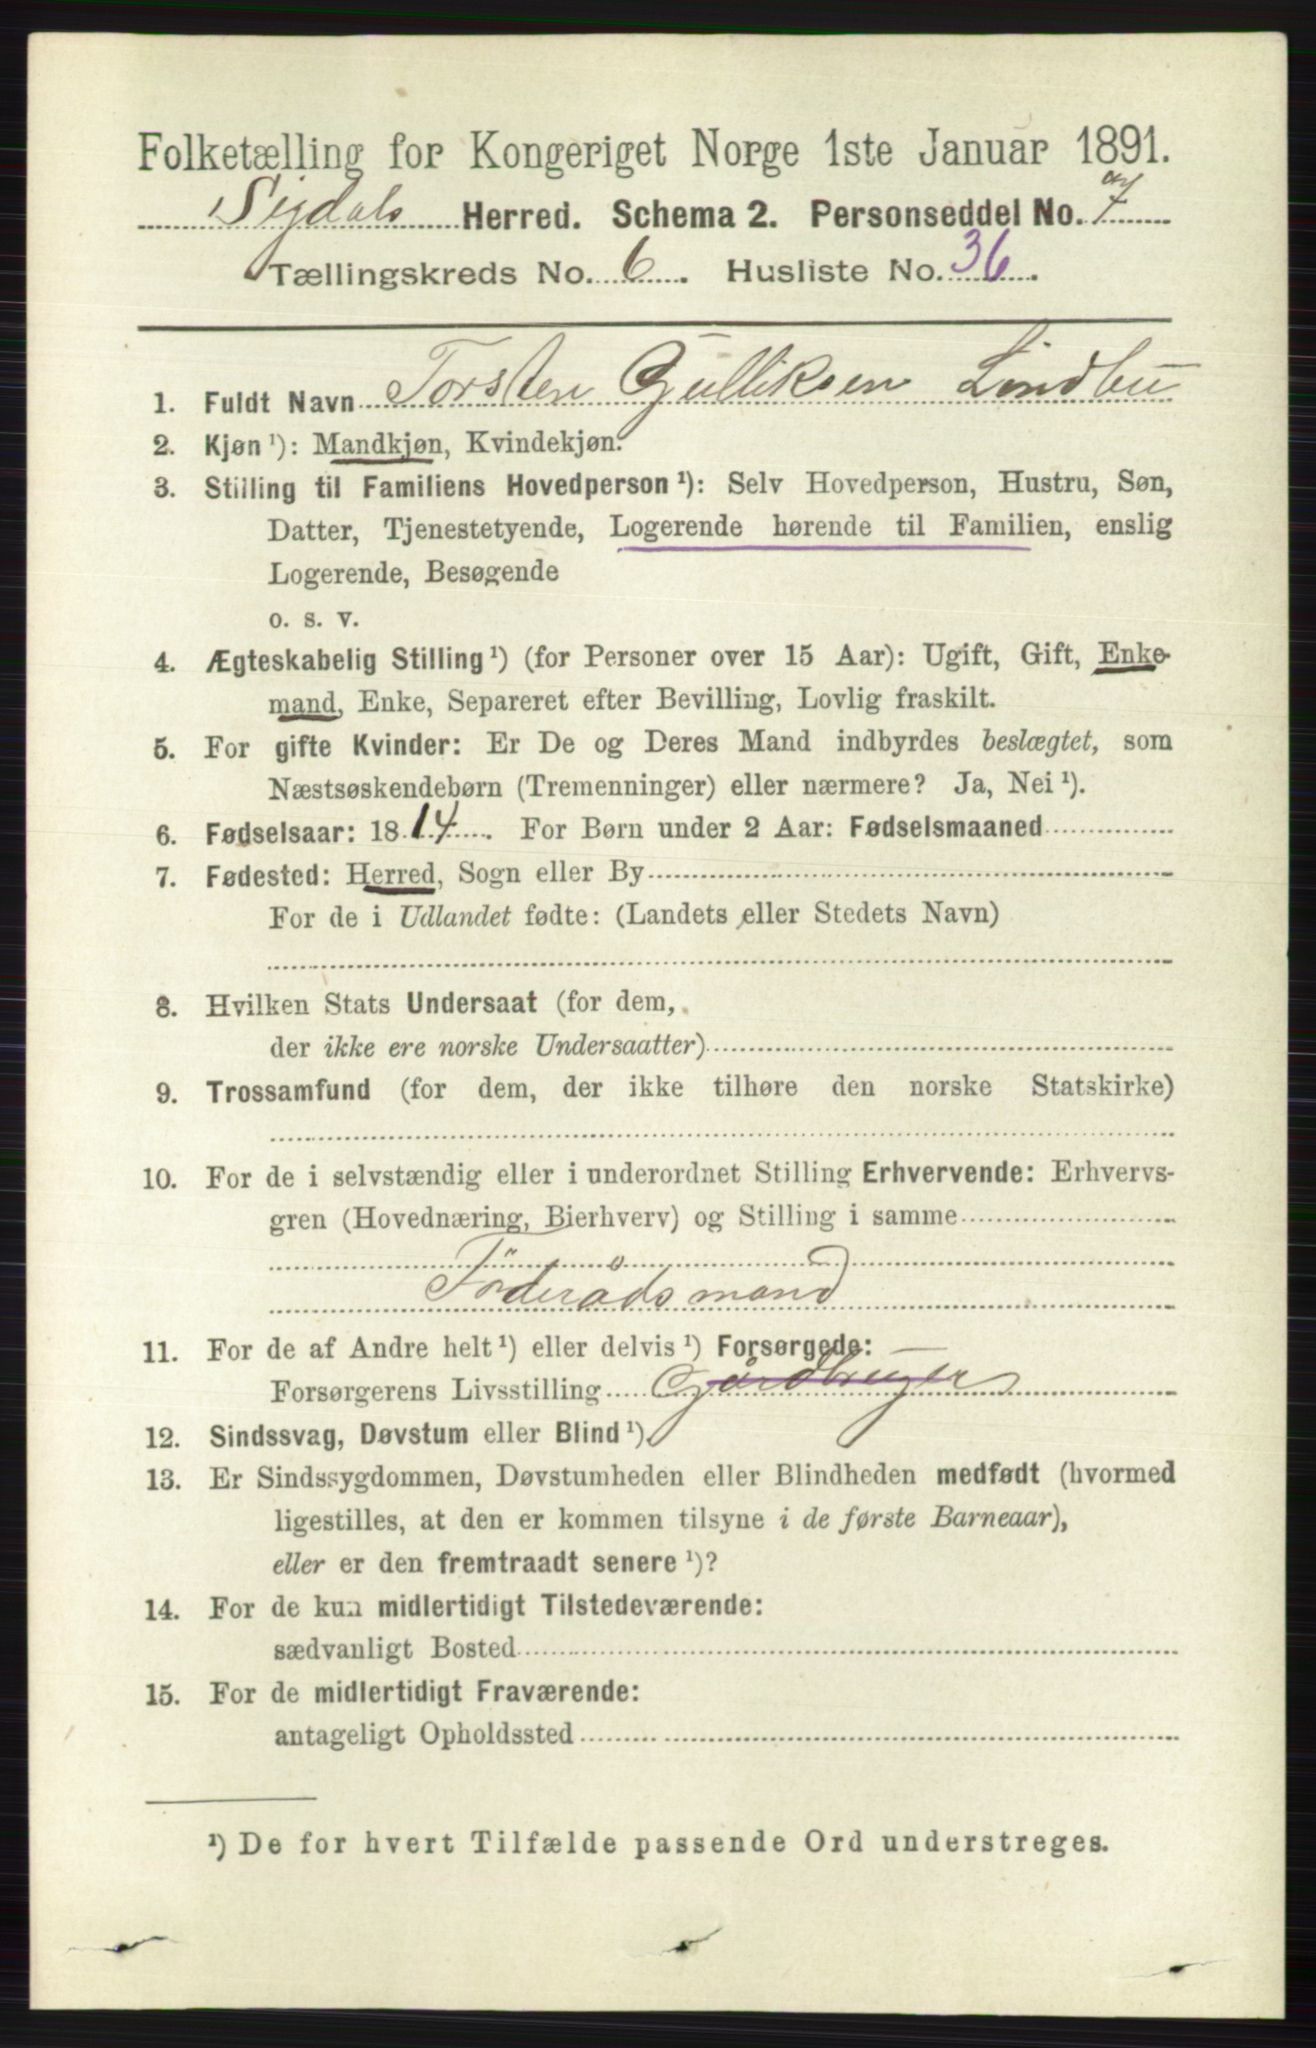 Folketælling for Kongeriget Norge 1ste Januar 1891.
Sigdals Herred. Schema 2. Personseddel No. 7
Tællingskreds No. 6. Husliste No. 36.
1. Fuldt Navn Torsten Gulliksen Lindbu
2. Kjøn ¹): Mandkjøn, Kvindekjøn.
3. Stilling til Familiens Hovedperson ¹): Selv Hovedperson, Hustru, Søn,
Datter, Tjenestetyende, Logerende hørende til Familien, enslig
Logerende, Besøgende
o. s. v.
4. Ægteskabelig Stilling ¹) (for Personer over 15 Aar): Ugift, Gift, Enke-
mand, Enke, Separeret efter Bevilling, Lovlig fraskilt.
5. For gifte Kvinder: Er De og Deres Mand indbyrdes beslægtet, som
Næstsøskendebørn (Tremenninger) eller nærmere? Ja, Nei ¹).
6. Fødselsaar: 1814. For Børn under 2 Aar: Fødselsmaaned
7. Fødested: Herred, Sogn eller By
For de i Udlandet fødte: (Landets eller Stedets Navn)
8. Hvilken Stats Undersaat (for dem,
der ikke ere norske Undersaatter)
9. Trossamfund (for dem, der ikke tilhøre den norske Statskirke)
10. For de i selvstændig eller i underordnet Stilling Erhvervende: Erhvervs-
gren (Hovednæring, Bierhverv) og Stilling i samme
Föderådsmand
11. For de af Andre helt ¹) eller delvis ¹) Forsørgede:
Forsørgerens Livsstilling Gårdbruger
12. Sindssvag, Døvstum eller Blind ¹).
13. Er Sindssygdommen, Døvstumheden eller Blindheden medfødt (hvormed
ligestilles, at den er kommen tilsyne i de første Barneaar),
eller er den fremtraadt senere ¹)?
14. For de kun midlertidigt Tilstedeværende:
sædvanligt Bosted
15. For de midlertidigt Fraværende:
antageligt Opholdssted
¹) De for hvert Tilfælde passende Ord understreges.